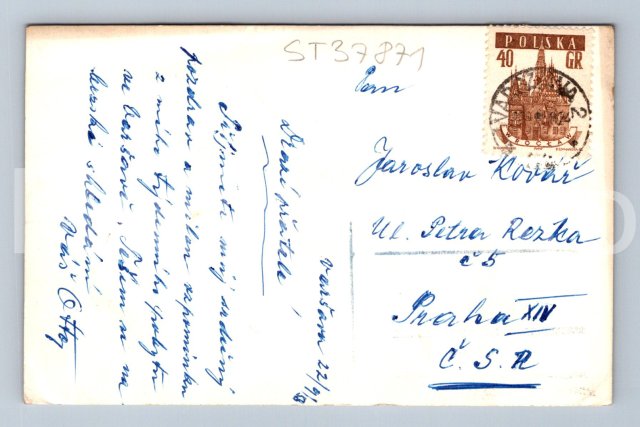 ST37871
POLSKA
40 GR
WARSZAWA 2
WROCŁAW
Pan
Jaroslav Kovář
Ul. Petra Rezka
č 5
Praha XIV
Č.S.R
Varšava 22/9
Drazí přátelé!
Přijměte můj srdečný
pozdrav a milou vzpomínku
z mého týdenního pobytu
ve Varšavě. Těším se na
brzské shledání
Váš Ota